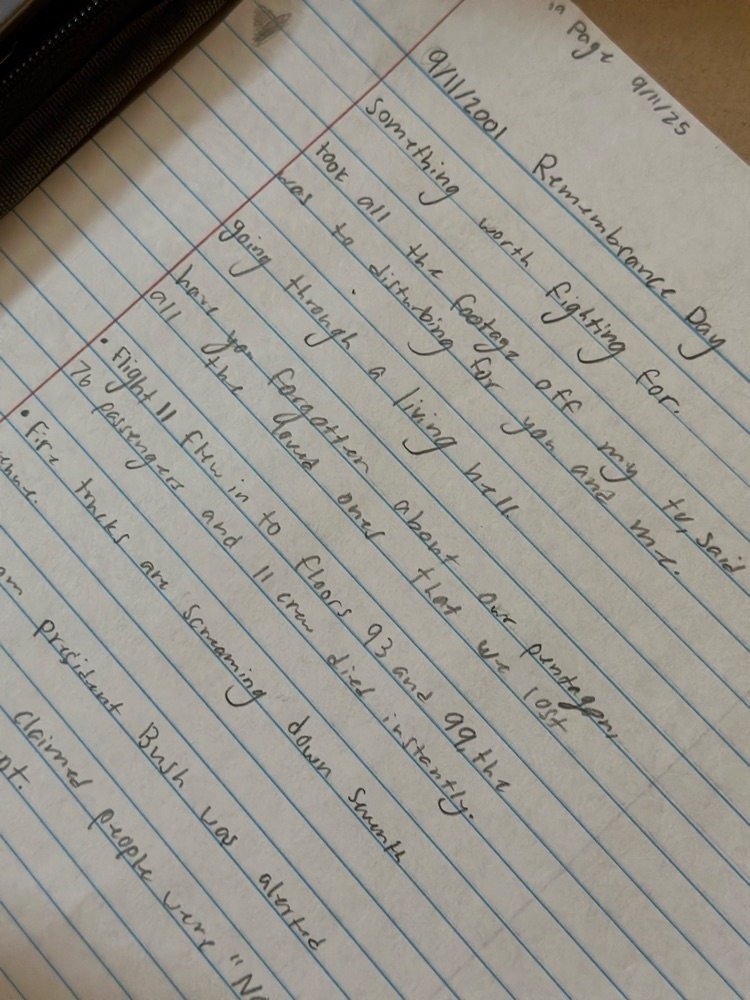 in Page 9/11/25
9/11/2001 Remembrance Day
Something worth fighting for.
took all the footage off my tv, said
was to disturbing for you and me.
going through a living hell.
have you forgotten about our pentagon,
all the loved ones that we lost
• Flight 11 flew in to floors 93 and 99, the
76 passengers and 11 crew died instantly.
• Fire trucks are "screaming" down Seventh
President Bush was alerted
Claimed people were "No